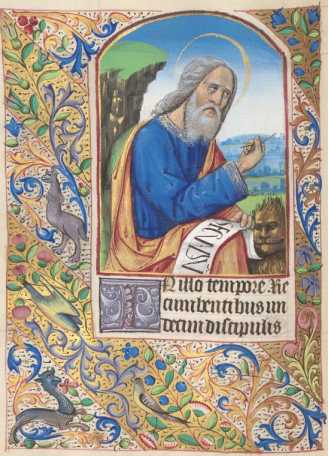 IN illo tempore Re
cumbentibus un
decim discipulis